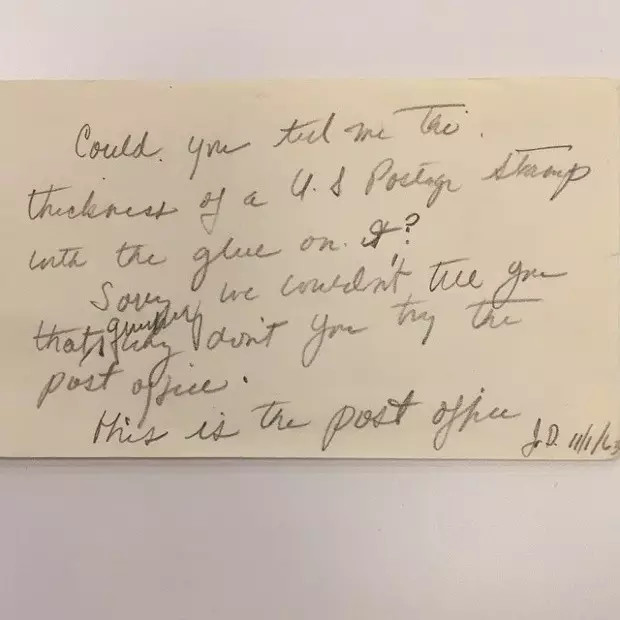 Could you tell me the
thickness of a U.S Postage Stamp
with the glue on it?
Sorry we couldn't tell you
that quickly. Why don't you try the
post office.
This is the post office
J.D. 11/1/63